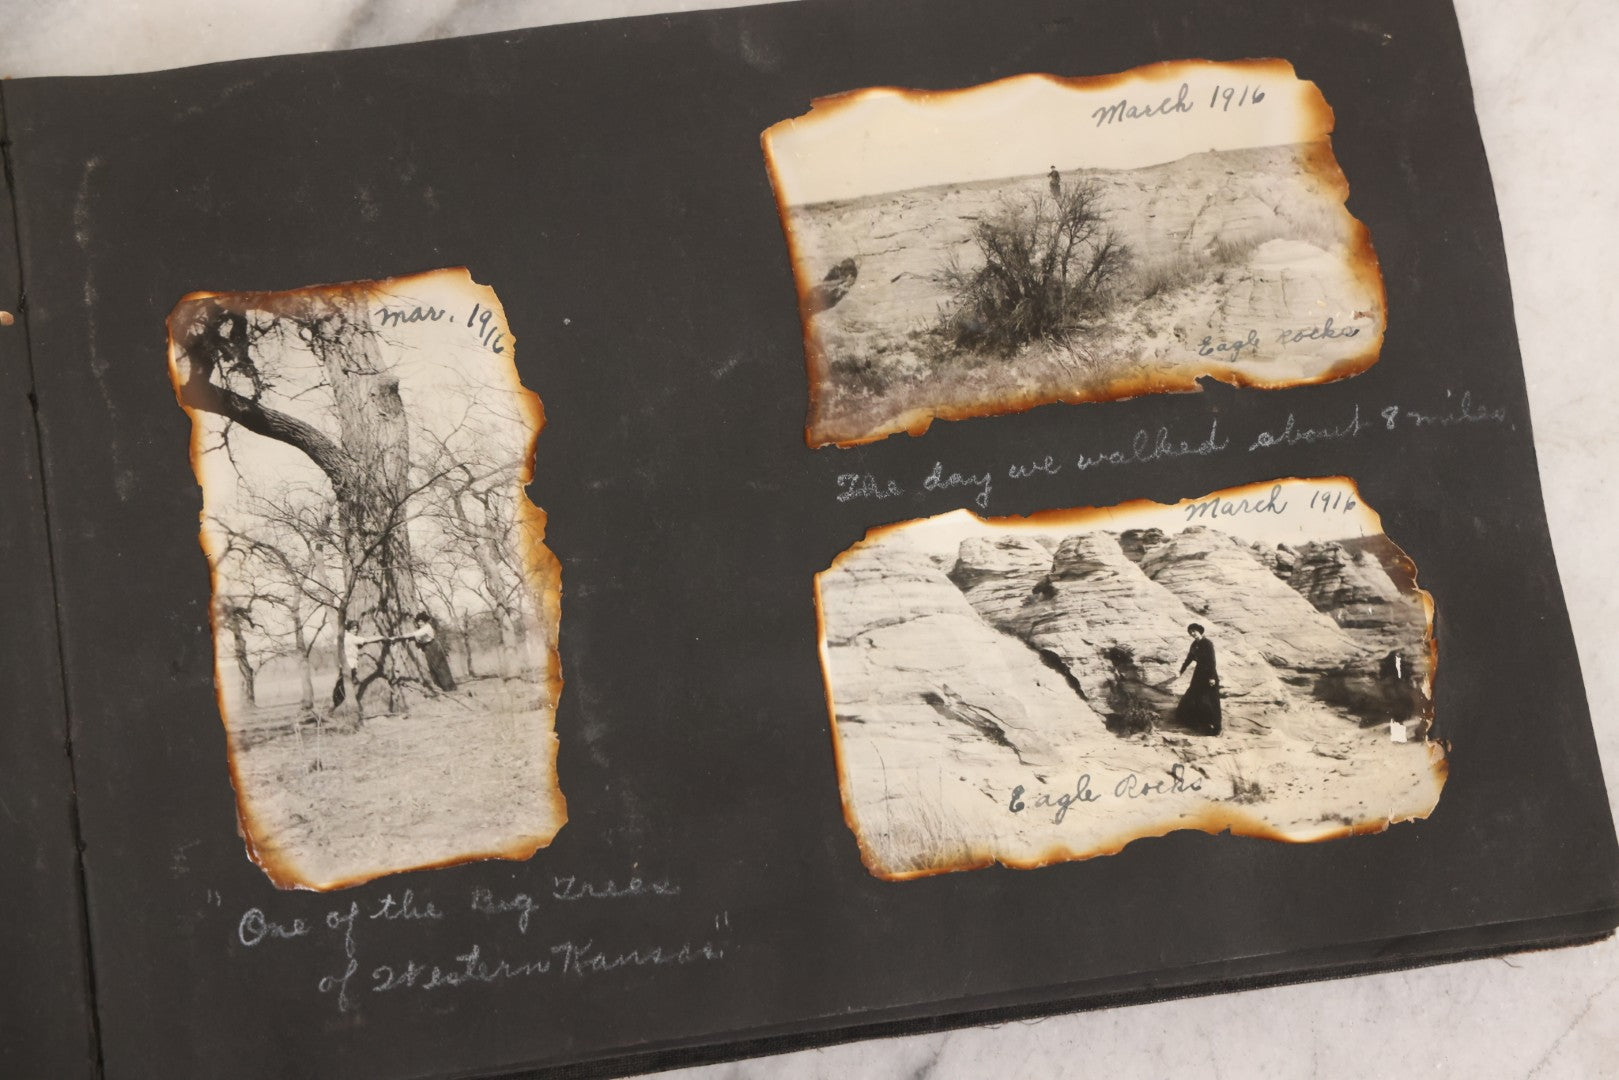 Mar. 1916
"One of the Big Trees
of Western Kansas"
March 1916
Eagle Rocks
The day we walked about 8 miles.
March 1916
Eagle Rocks